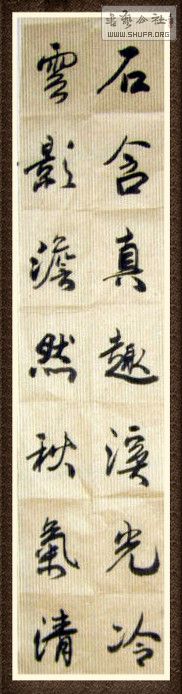 石含真趣溪光冷
雲影澹然秋氣清
WWW.SHUFA.ORG